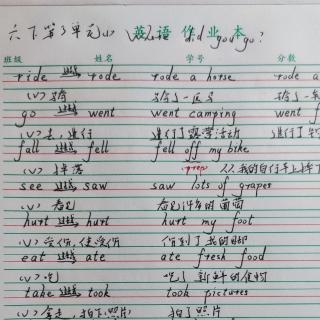 六下第3单元 英语作业本 did you go?
班级 姓名 学号 分数
ride 过去式 rode rode a horse rode a
(v.) 骑 骑了一匹马
go 过去式 went went camping went
(v.) 去,进行 进行了露营活动
fall 过去式 fell fell off my bike fell
(v.) 掉落 prep 从我的自行车上摔下
see 过去式 saw saw lots of grapes
(v.) 看见 看见许多的葡萄
hurt 过去式 hurt hurt my foot
(v.) 受伤,使受伤 伤到了我的脚
eat 过去式 ate ate fresh food
(v.) 吃 吃了新鲜的食物
take 过去式 took took pictures
(v.) 拿走,拍下(照片) 拍了照片